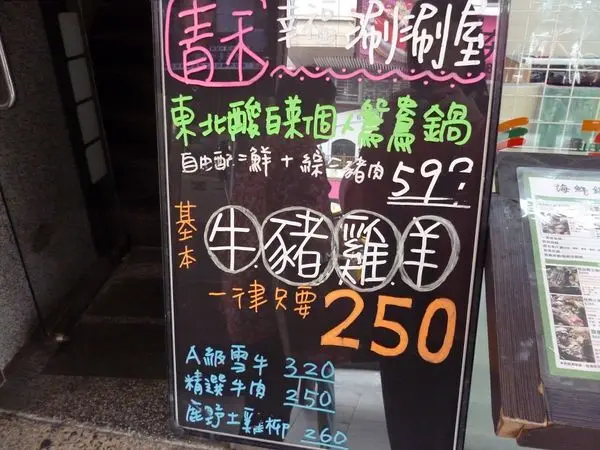 青禾 涮涮屋
東北酸白菜個人鴛鴦鍋
自由配二鮮+綜二豬肉 59?
基本 牛.豬.雞.羊
一律只要 250
A級雪牛 320
精選牛肉 250
鹿野土雞柳 260
海鮮